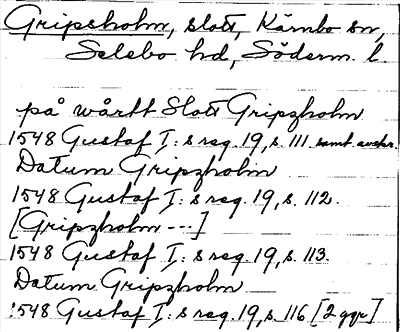 Gripsholm, slott, Kärnbo sn,
Selebo hd, Söderm. l
på wårtt Slott Gripzholm
1548 Gustaf I:s reg. 19, s. 111 samt. avskr.
Datum Gripzholm
1548 Gustaf I:s reg. 19, s. 112.
[Gripzholm ---]
1548 Gustaf I:s reg. 19, s. 113.
Datum Gripzholm
1548 Gustaf I:s reg. 19, s. 116 [2 ggr]